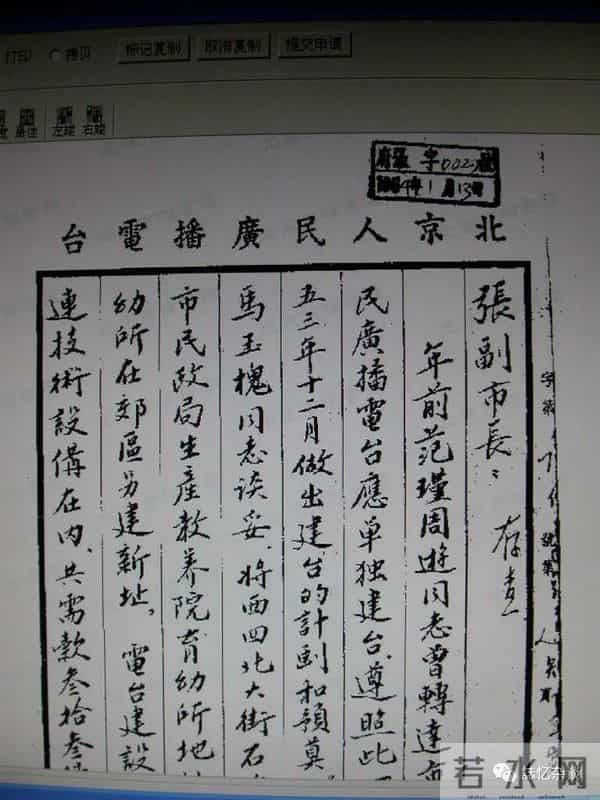 打印 拷贝 标记复制 取消复制 提交申请
最佳 左旋 右旋
字002
年1月13
北京人民廣播電台
張副市長：
存查
年前范瑾周遊同志曾轉達
民廣播電台應单独建台、遵照此
五三年十二月做出建台的計劃和預算
馬玉槐同志谈妥、将西四北大街石
市民政局生産教养院育幼所地
幼所在郊區另建新址。電台建設
連技術設備在内、共需款叁拾叁
若水网